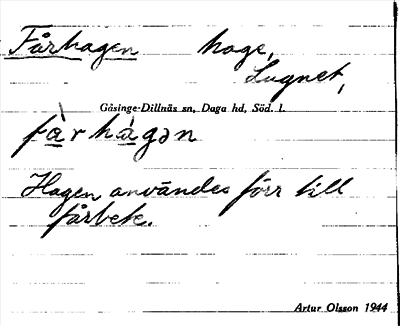 Fårhagen hage,
Lugnet,
Gåsinge-Dillnäs sn, Daga hd, Söd. l.
fà̱rhá̱gən
Hagen användes förr till
fårbete.
Artur Olsson 1944